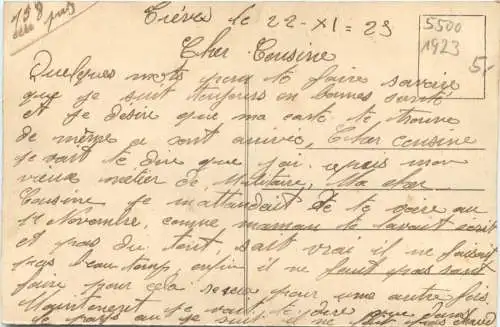 158
Tréves le 22-XI=23
5500
1923
5,-
Cher Cousine
Quelques mots pour te faire savoir
que je suit toujours en bonnes santé
et je désire que ma carte te trouve
de même a sont arrivée, Cher cousine
je vait te dire que j'ai repris mon
vieux métier de Militaire, Ma cher
Cousine je m'attendait de te voire au
11 Novembre, comme maman te l'avait écrit
et pas du tout, sait vrai il ne faisait
pas beau temp, enfin il ne faut pas sant
faire pour cela se sera pour une autre fois.
Maintenent je vait te dire que dans
le pays au je suit il ne fait pas